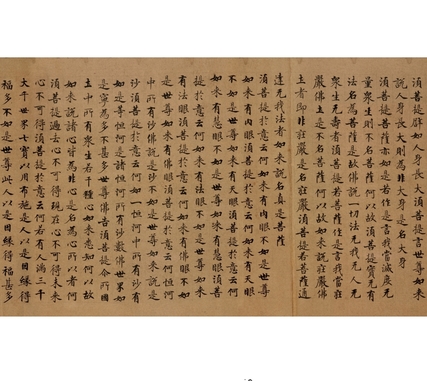 須菩提譬如人身長大須菩提言世尊如來
說人身長大則為非大身是名大身
須菩提菩薩亦如是若作是言我當滅度无
量眾生則不名菩薩何以故須菩提實无有
法名為菩薩是故佛說一切法无我无人无
眾生无壽者須菩提若菩薩作是言我當莊
嚴佛土是不名菩薩何以故如來說莊嚴佛
土者即非莊嚴是名莊嚴須菩提若菩薩通
達无我法者如來說名真是菩薩
須菩提於意云何如來有肉眼不如是世尊
如來有肉眼須菩提於意云何如來有天眼
不如是世尊如來有天眼須菩提於意云何
如來有慧眼不如是世尊如來有慧眼須菩
提於意云何如來有法眼不如是世尊如來
有法眼須菩提於意云何如來有佛眼不如
是世尊如來有佛眼須菩提於意云何恒河
中所有沙佛說是沙不如是世尊如來說是
沙須菩提於意云何如一恒河中所有沙有
如是等恒河是諸恒河所有沙數佛世界如
是寧為多不甚多世尊佛告須菩提尒所國
土中所有眾生若干種心如來悉知何以故
如來說諸心皆為非心是名為心所以者何
須菩提過去心不可得現在心不可得未來
心不可得須菩提於意云何若有人滿三千
大千世界七寶以用布施是人以是因緣得
福多不如是世尊此人以是因緣得福甚多